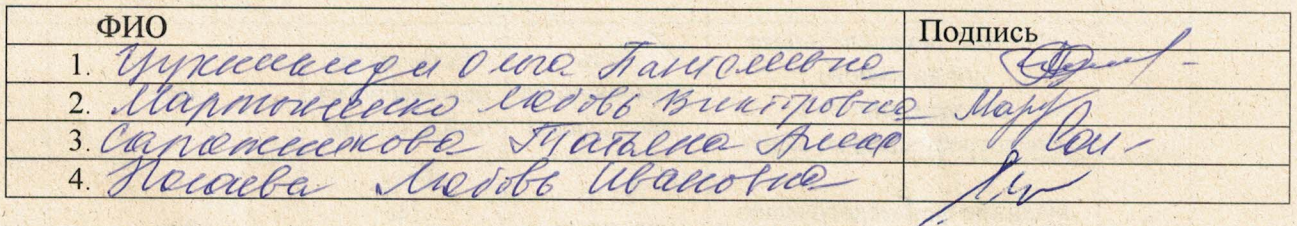 ФИО Подпись
1. Ольга Пантелеевна
2. Мартыненко Любовь Викторовна Мар
3. Сапожникова Татьяна Алекс Сап-
4. Любовь Ивановна